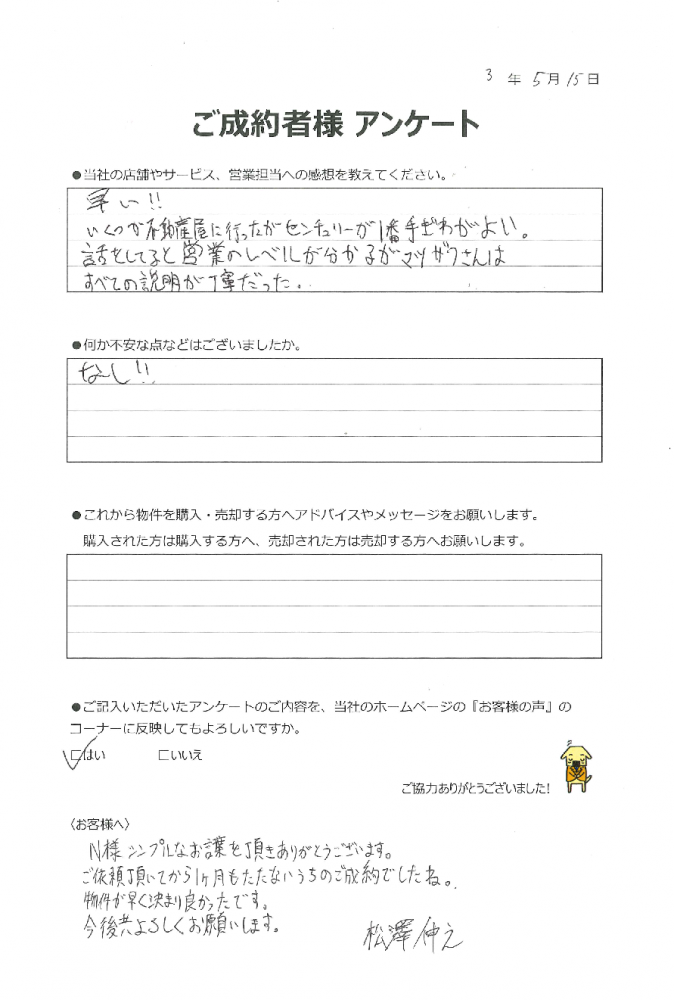 3 年 5月 15日
ご成約者様 アンケート
●当社の店舗やサービス、営業担当への感想を教えてください。
早い!!
いくつか不動産屋に行ったがセンチュリーが1番手ぎわがよい。
話をしてると営業のレベルが分かるがマツザワさんは
すべての説明が丁寧だった。
●何か不安な点などはございましたか。
なし!!
●これから物件を購入・売却する方へアドバイスやメッセージをお願いします。
購入された方は購入する方へ、売却された方は売却する方へお願いします。
●ご記入いただいたアンケートのご内容を、当社のホームページの『お客様の声』の
コーナーに反映してもよろしいですか。
☑はい □いいえ
ご協力ありがとうございました!
〈お客様へ〉
N様 シンプルなお言葉を頂きありがとうございます。
ご依頼頂いてから1ヶ月もたたないうちのご成約でしたね。
物件が早く決まり良かったです。
今後共よろしくお願いします。
松澤